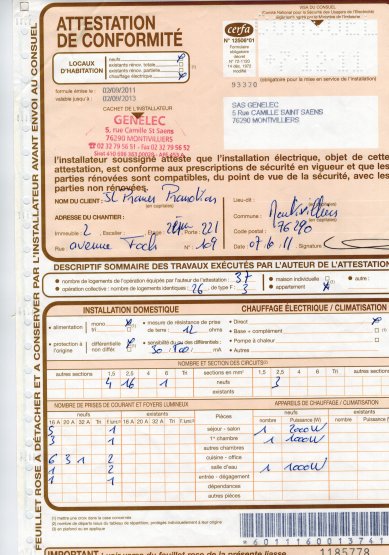 ATTESTATION
DE CONFORMITÉ
cerfa
N° 12506*01
Formulaire
obligatoire
VISA DU CONSUEL
(Comité National pour la Sécurité des Usagers de l'Électricité)
LOCAUX
D'HABITATION
neufs
existants rénov. totale
existants rénov. partielle
chauffage électrique
(obligatoire pour la mise en service de l'installation)
93370
formule émise le : 02/09/2011
valable jusqu'à : 02/09/2013
CACHET DE L'INSTALLATEUR
GENELEC
5, rue Camille St Saens
76290 MONTIVILLIERS
☎ 02 32 79 56 51 - Fax 02 32 79 56 52
SAS GENELEC
5 Rue CAMILLE SAINT SAENS
76290 MONTIVILLIERS
l'installateur soussigné atteste que l'installation électrique, objet de cette
attestation, est conforme aux prescriptions de sécurité en vigueur et que les
parties rénovées sont compatibles, du point de vue de la sécurité, avec les
parties non rénovées.
NOM DU CLIENT : St Promotion
(en capitales)
Lieu-dit :
ADRESSE DU CHANTIER :
Commune : Montivilliers
(en capitales)
Immeuble : 2 Escalier : Etage : 2ème Porte : 221
Code postal : 76290
Rue : avenue Foch N° : 109
07.10.11 Signature :
DESCRIPTIF SOMMAIRE DES TRAVAUX EXÉCUTÉS PAR L'AUTEUR DE L'ATTESTATION
nombre de logements de l'opération équipés par l'auteur de l'attestation : 37
maison individuelle
autre :
opération collective : nombre de logements identiques : 26 de type F : 3
appartement
INSTALLATION DOMESTIQUE
CHAUFFAGE ÉLECTRIQUE / CLIMATISATION
alimentation mono tri
mesure de résistance de prise de terre : 12 ohms
Direct
Base + complément
protection à l'origine différentielle non différ.
sensibilité du ou des différentiels : 30 mA
Pompe à chaleur
Autre
NOMBRE ET SECTION DES CIRCUITS
autres sections 1,5 2,5 4 6 Tri sections en mm² 1,5 2,5 4 6 Tri autres sections
4 16 1 neufs 3
existants
NOMBRE DE PRISES DE COURANT ET FOYERS LUMINEUX
APPAREILS DE CHAUFFAGE / CLIMATISATION
neufs existants Pièces neufs existants
16 A 20 A 32 A Tri f.lum. 16 A 20 A 32 A Tri f.lum. nombre Puissance (W) nombre Puissance (W)
5 1 séjour - salon 1 2000W
3 1 1re chambre 1 1000W
autres chambres
6 3 1 2 cuisine - office
1 2 salle d'eau 1 1000W
1 1 entrée - dégagement
dépendances
autres pièces
(1) mettre une croix dans la case concernée
(2) nombre de départs issus du tableau de répartition, protégés individuellement à leur origine
(3) en plafond ou en applique
*60111160013741
1185778
FEUILLET ROSE À DÉTACHER ET À CONSERVER PAR L'INSTALLATEUR AVANT ENVOI AU CONSUEL